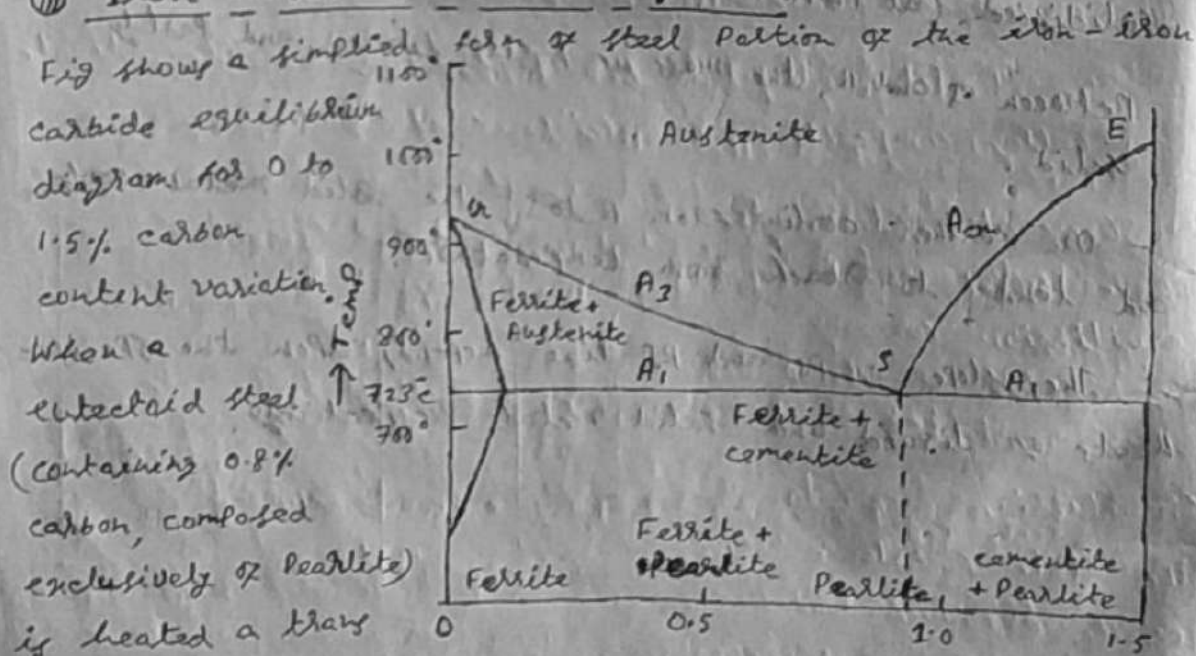 Fig shows a simplied form of steel Portion of the iron - iron
carbide equilibrium
diagram for 0 to
1.5% carbon
content variation.
When a
eutectoid steel
(containing 0.8%
carbon, composed
exclusively of Pearlite)
is heated a trans
1100°
1000°
900°
800°
723°c
700°
Temp
Austenite
E
G
Acm
A3
Ferrite +
Austenite
A1
S
A1
Ferrite +
cementite
Ferrite +
Pearlite
Ferrite
Pearlite
cementite
+ Pearlite
0
0.5
1.0
1.5